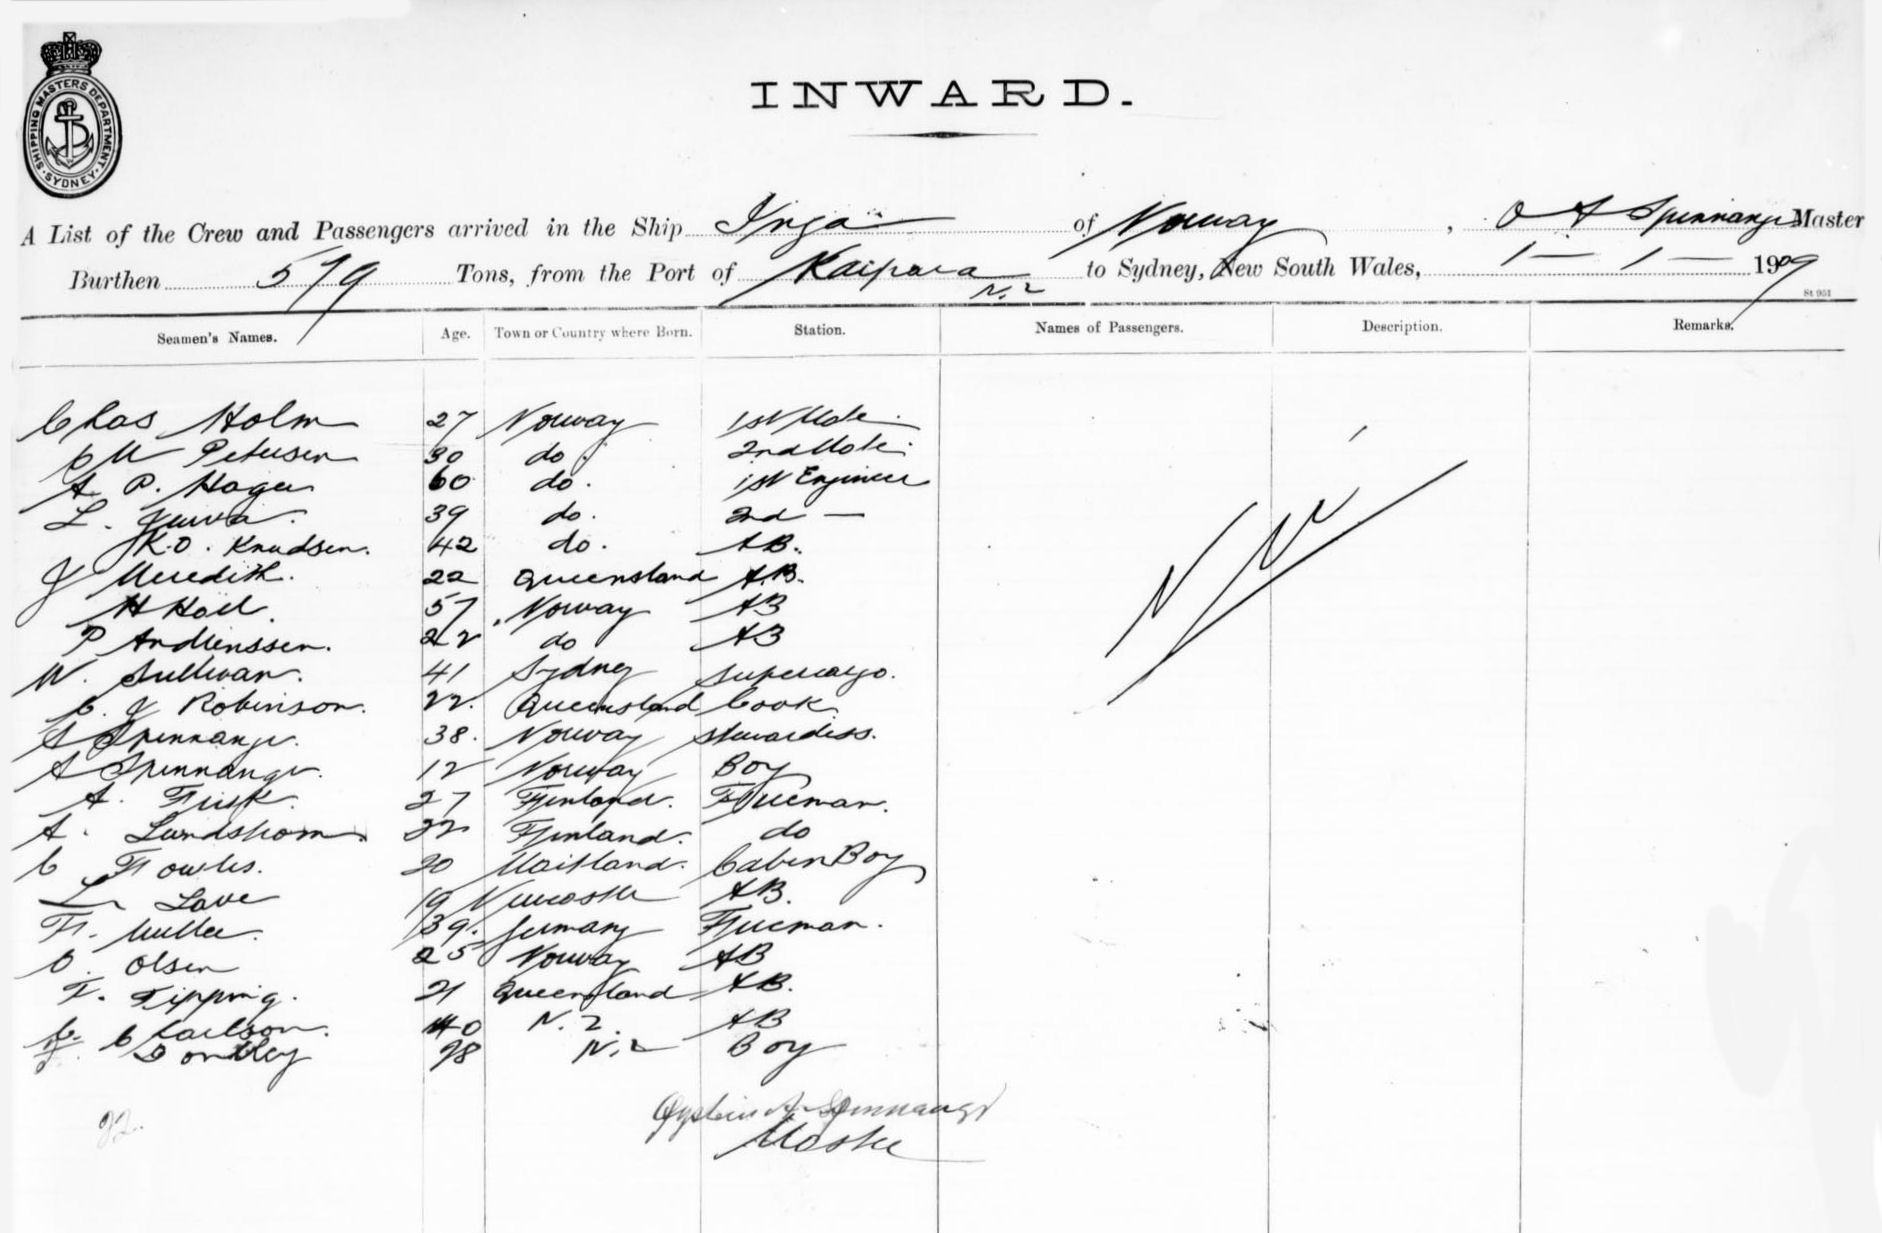 SHIPPING MASTERS DEPARTMENT. SYDNEY
INWARD.
A List of the Crew and Passengers arrived in the Ship Inga of Norway, O A Spinnangr Master
Burthen 579 Tons, from the Port of Kaipara N.Z to Sydney, New South Wales, 1 — 1 — 1909
St 951
Seamen's Names. Age. Town or Country where Born. Station. Names of Passengers. Description. Remarks.
Chas Holm 27 Norway 1st Mate
Petersen 30 do. 2nd Mate
A. P. Hagen 60 do. 1st Engineer
L. 39 do. 2nd —
K.O. Knudsen. 42 do. A B.
J Meredith. 22 Queensland A.B.
H Hoel. 57 Norway AB
P Andreassen. 22 do AB
W. Sullivan. 41 Sydney Supercargo.
C. J Robinson. 22. Queensland Cook.
S Spinnangr. 38. Norway Stewardess.
A Spinnangr. 12 Norway Boy
A. Frisk. 27 Finland. Fireman.
A. Lundstrom. 22 Finland. do
C Fowles. 20 Maitland. Cabin Boy
L Love 19 Newcastle AB.
Fr. Muller. 39. Germany Fireman.
O. Olsen 25 Norway AB
F. Tipping. 21 Queensland AB.
C. C Karlson. 40 N.Z. AB
J. 98 N.Z Boy
Nil
22.
Oystein A. Spinnangr
Master